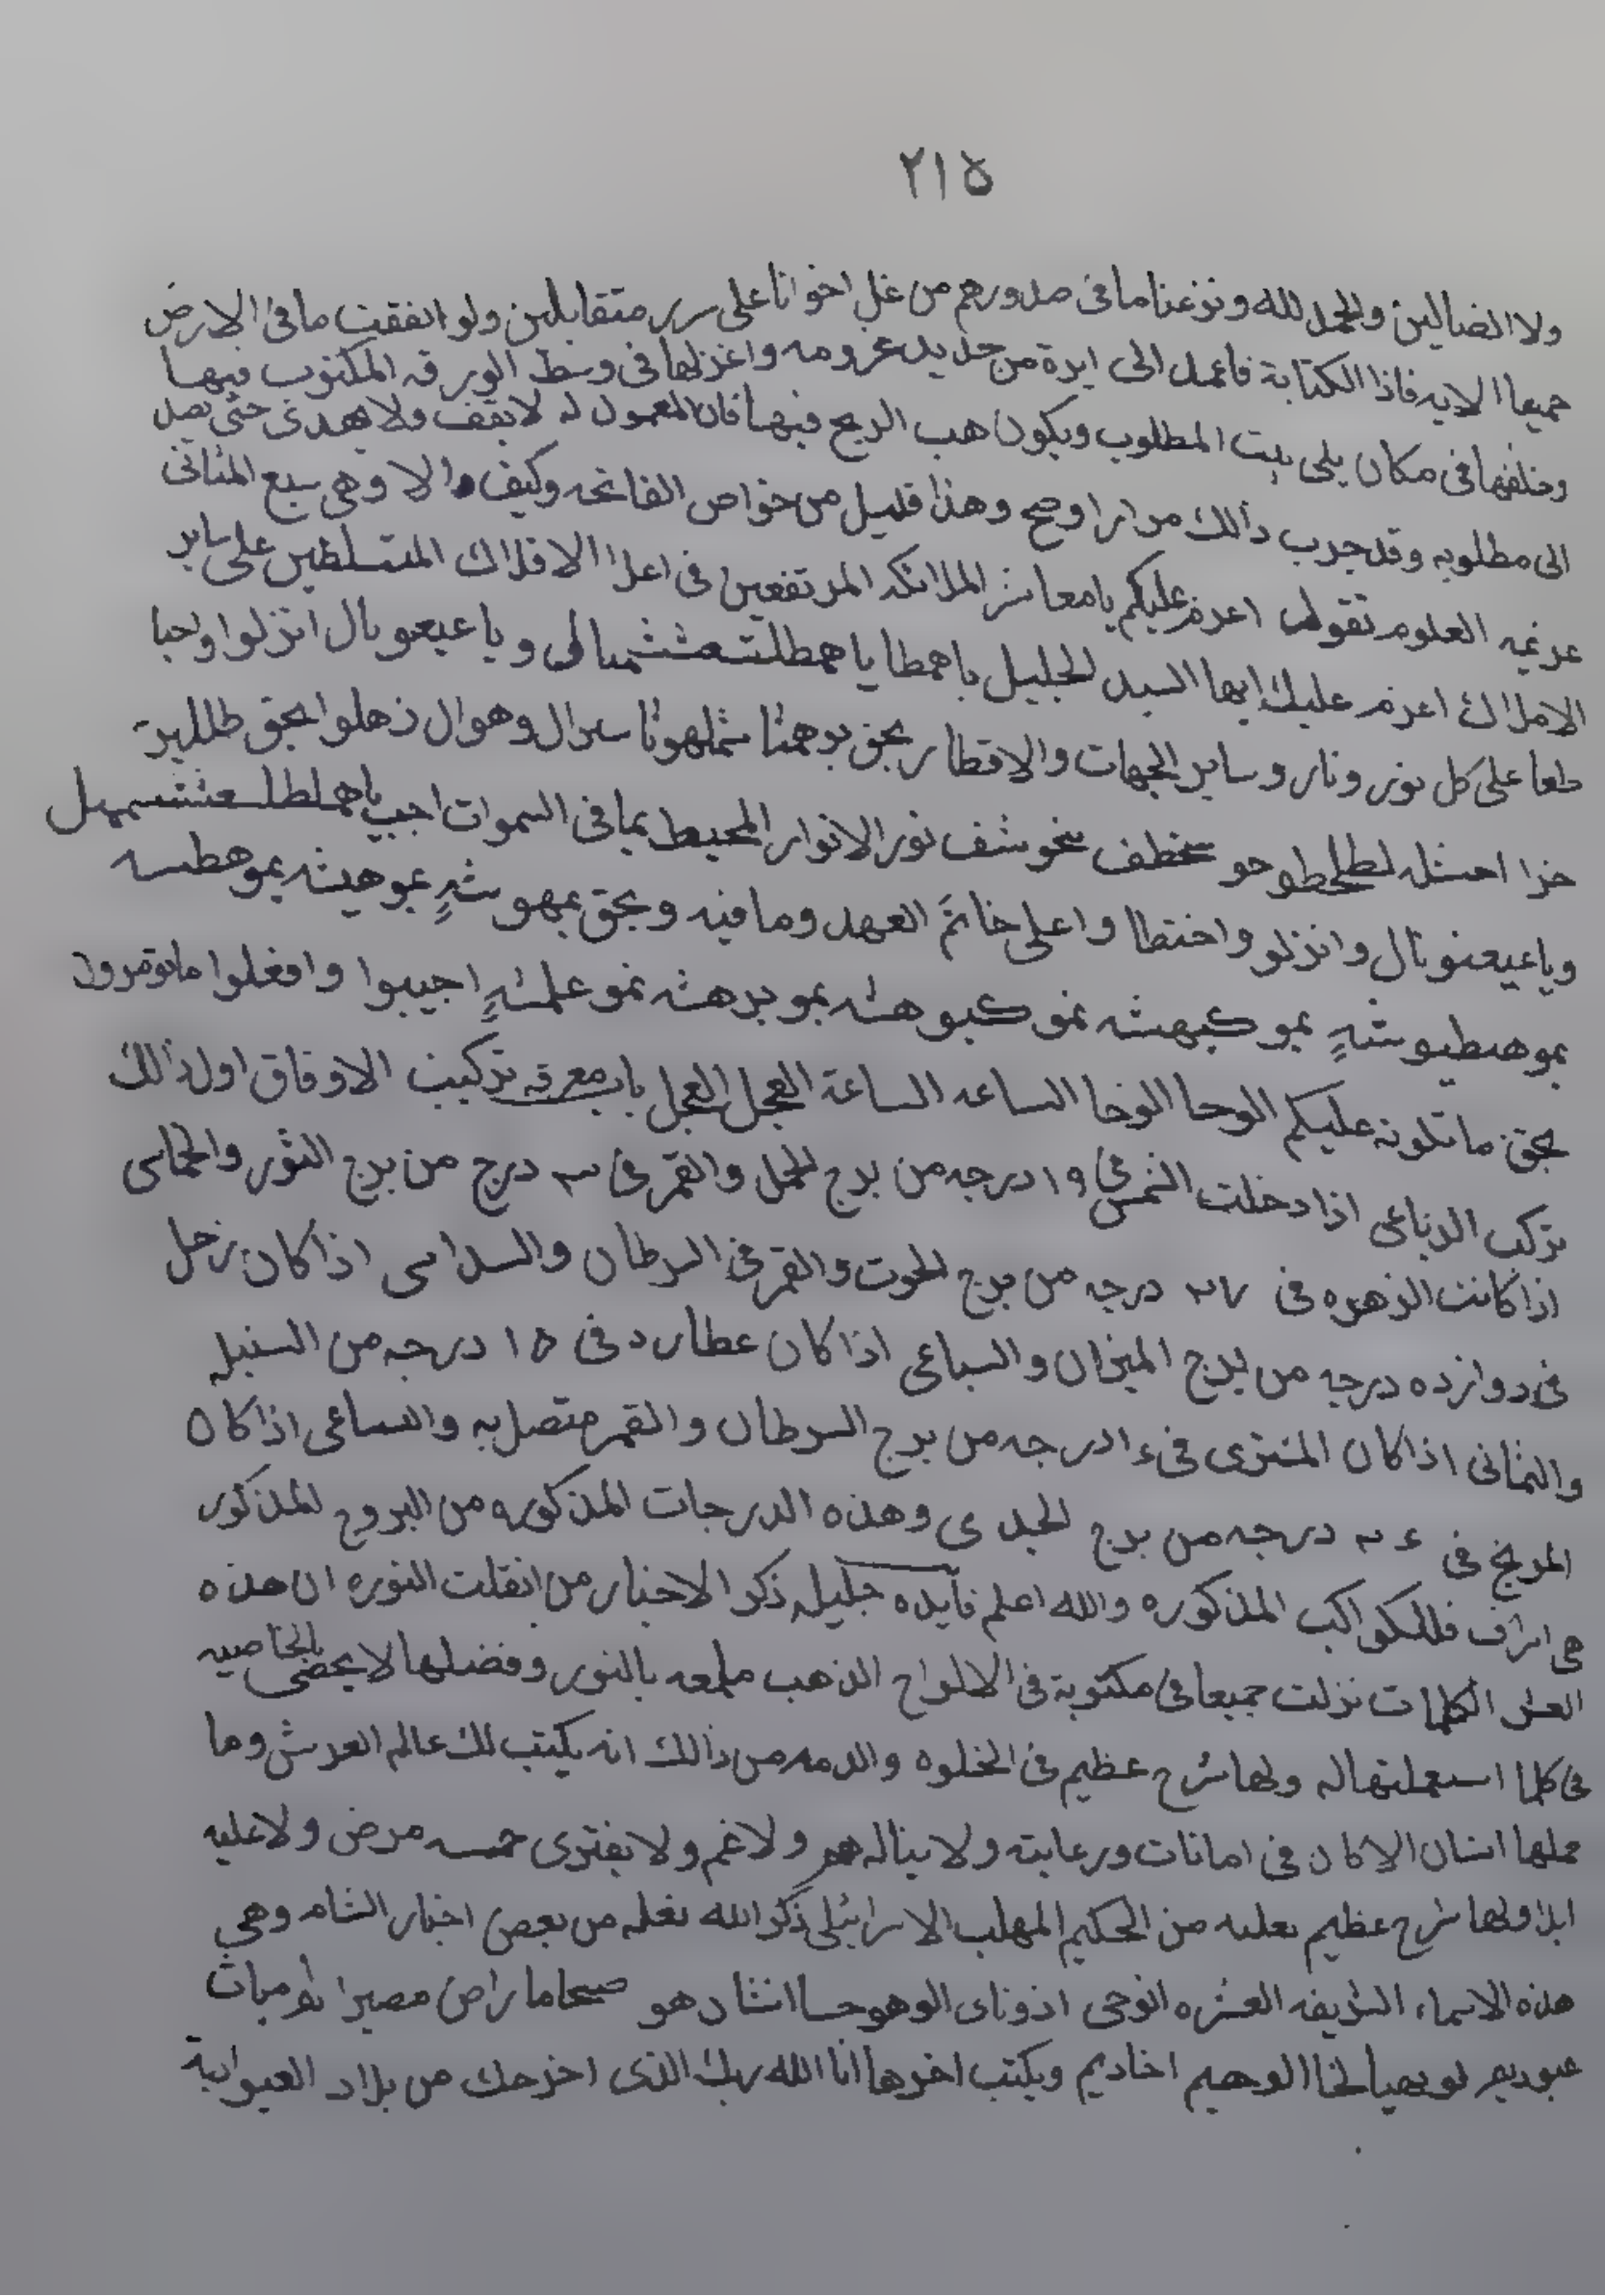 ٢١٥
ولا الضالين والحمد لله ونزعنا ما فى صدورهم من غل اخوانا على سرر متقابلين ولو انفقت ما فى الارض
جميعا الايه فاذا الكتابة فاعمد الى ابرة من حديد عزومه واغرزلها فى وسط الورقه المكتوب فيها
وخلفها فى مكان يلى بيت المطلوب ويكون هب الريح فيها فان المعمول له لا يقف ولا يهدى حتى يصل
الى مطلوبه وقد جرب ذالك مرارا وصح وهذا قليل من خواص الفاتحه وكيف والا وهى سبع المثانى
عزيمه العلوم تقول اعزم عليكم يا معاشر الملائكه المرتفعين فى اعلا الافلاك المتسلطين على ساير
الاملاك اعزم عليك ايها السيد الجليل ياهمطا ياهمطلشعثثميالى وياعيعويال انزلوا واحبا
طعا على كل نور ونار وساير الجهات والاقطار بحق بوهمثا شملهوثا سرال وهوال زهلوا بحق
خزا لطلحطوحو سخطف سخوشف نور الانوار المحيط بما فى السموات اجب
وياعيعنويال وانزلو واختطا واعلى خاتم العهد وما فيه وبحق بمهوشه بموهيشه بموهطسه
بموهطيوشه بموكيهشه نموكيوهشه بموبرهشه نموعلمشه اجيبوا وافعلوا ما تومرون
بحق ما تلوته عليكم الوحا الوحا الساعه الساعة العجل العجل باب معرفه تركيب الاوفاق اول ذالك
تركب الرباعى اذا دخلت الشمس فى ١٩ درجه من برج الحمل والقمر فى ٣ درج من برج الثور والخماسى
اذا كانت الزهره فى ٢٧ درجه من برج الحوت والقمر فى السرطان والسداسى اذا كان زحل
فى دوازده درجه من برج الميزان والسباعى اذا كان عطارد فى ١٥ درجه من السنبله
والثمانى اذا كان المشترى فى ١٤ درجه من برج السرطان والقمر متصل به والتساعى اذا كان
المريخ فى درجه من برج الجدى وهذه الدرجات المذكوره من البروج المذكور
هى اشراف فللكواكب المذكوره والله اعلم فآيده جليله ذكر الاحبار من انقلت التوره ان هذه
العشر الكلمات نزلت جميعا فى مكتوبة فى الالواح الذهب ملمعه بالنور وفضلها لا يحصى بالخاصيه
فى كلما استعملتها له ولها شرح عظيم فى الخلوه والدمه من ذالك انه يكتب لك عالم العرش وما
حملها انسان الا كان فى امانات ورعايته ولا يناله هم ولا غم ولا يفترى جسمه مرض ولا عليه
ابدا ولها شرح عظيم نعلمه من الحكيم المهلب الاسرائيلى ذكر الله نعلمه من بعض اخبار الشام وهى
هذه الاسماء الشريفه العشره انوخى اذوناى الوهوحا اشادهو صحاما راص مصيرا
عبوديم لو يهيا لخا الوهيم اخاديم ويكتب اخرها انا الله ربك الذى اخرجك من بلاد العبوديه